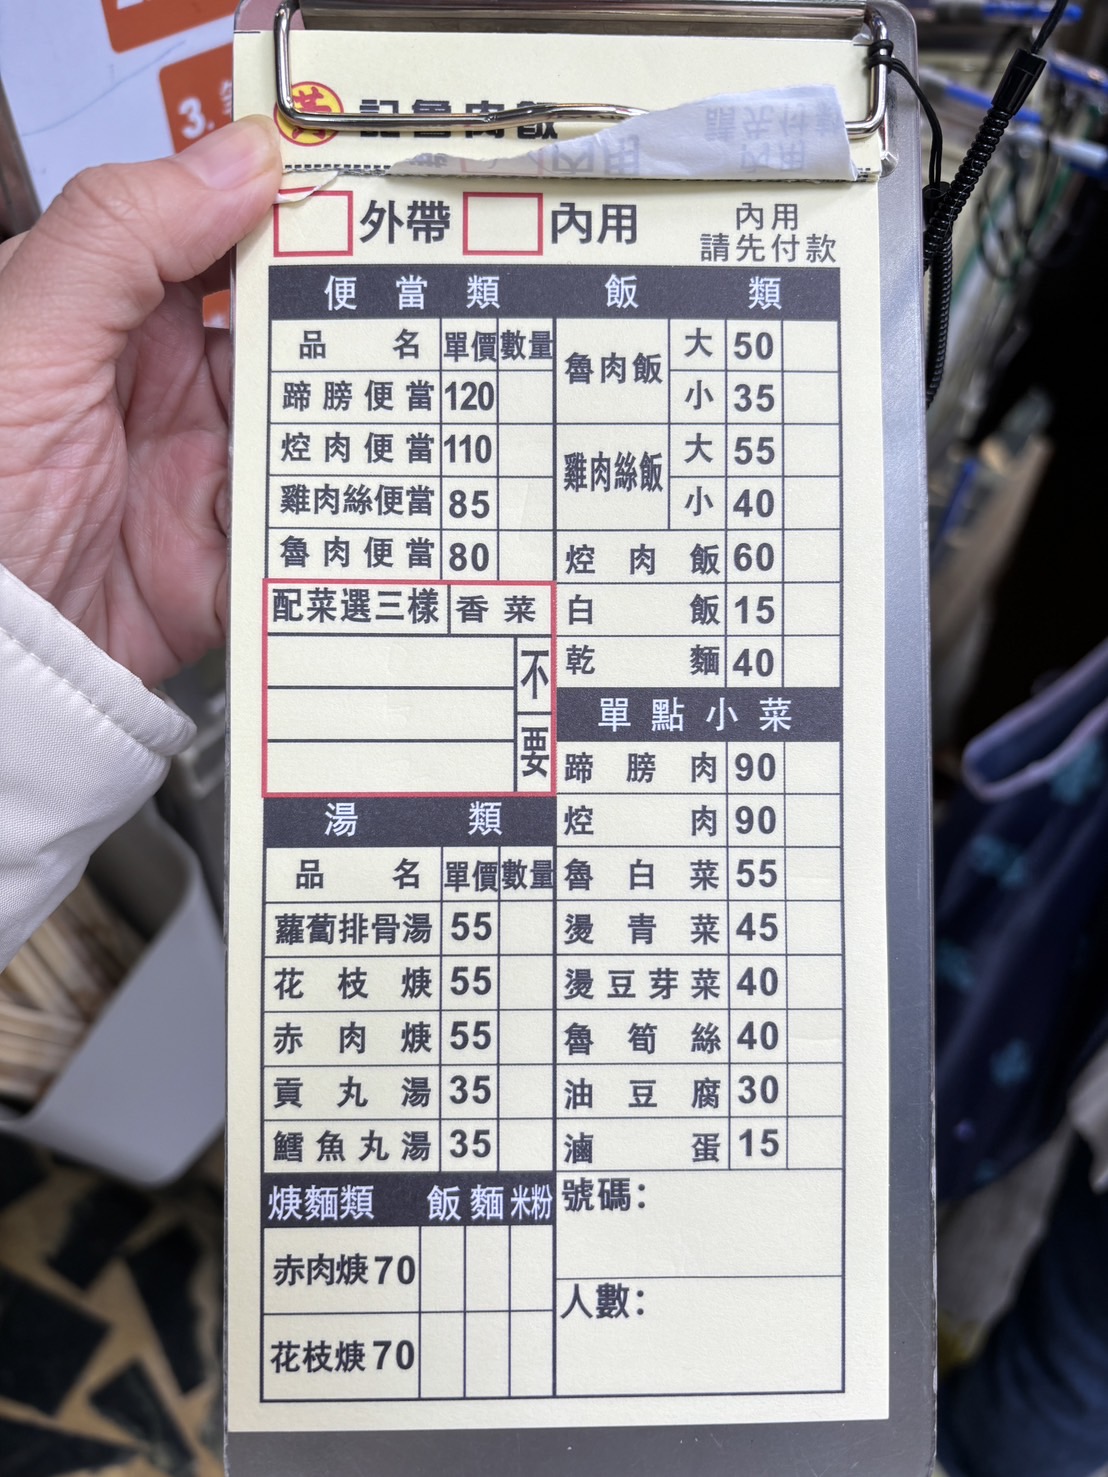 3.
黃記魯肉飯
外帶 內用 內用
請先付款
便當類
品名 單價 數量
蹄膀便當 120
焢肉便當 110
雞肉絲便當 85
魯肉便當 80
配菜選三樣 香菜
不
要
湯類
品名 單價 數量
蘿蔔排骨湯 55
花枝焿 55
赤肉焿 55
貢丸湯 35
鱈魚丸湯 35
焿麵類 飯 麵 米粉
赤肉焿 70
花枝焿 70
飯類
魯肉飯 大 50
小 35
雞肉絲飯 大 55
小 40
焢肉飯 60
白飯 15
乾麵 40
單點小菜
蹄膀肉 90
焢肉 90
魯白菜 55
燙青菜 45
燙豆芽菜 40
魯筍絲 40
油豆腐 30
滷蛋 15
號碼：
人數：